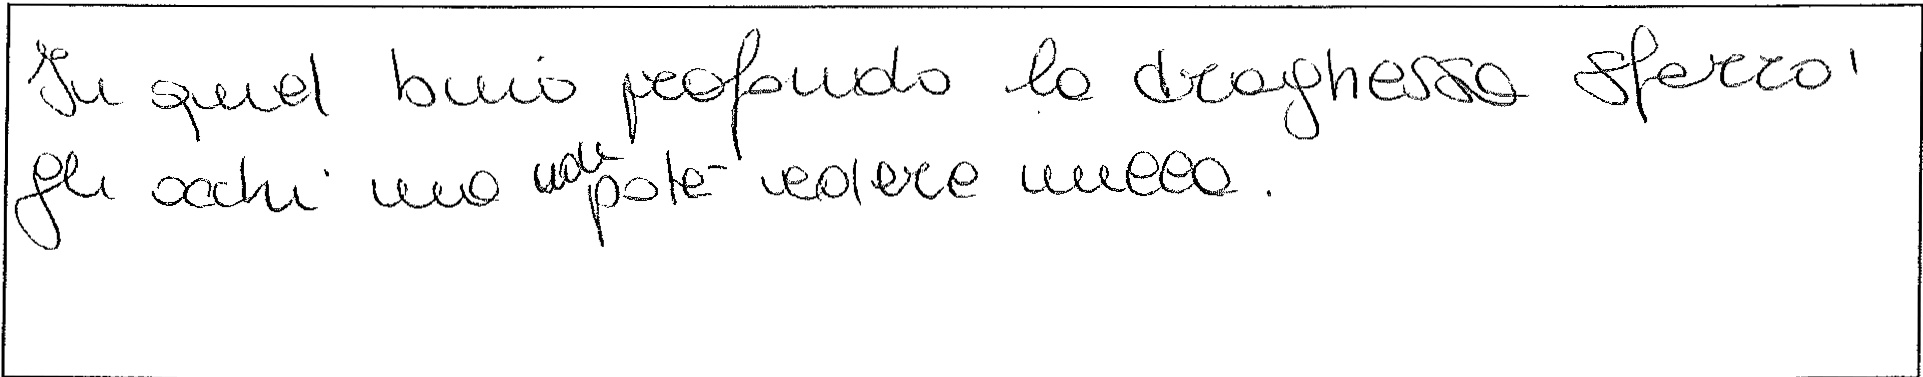 In quel buio profondo la draghessa sferrò
gli occhi ma non poté vedere nulla.